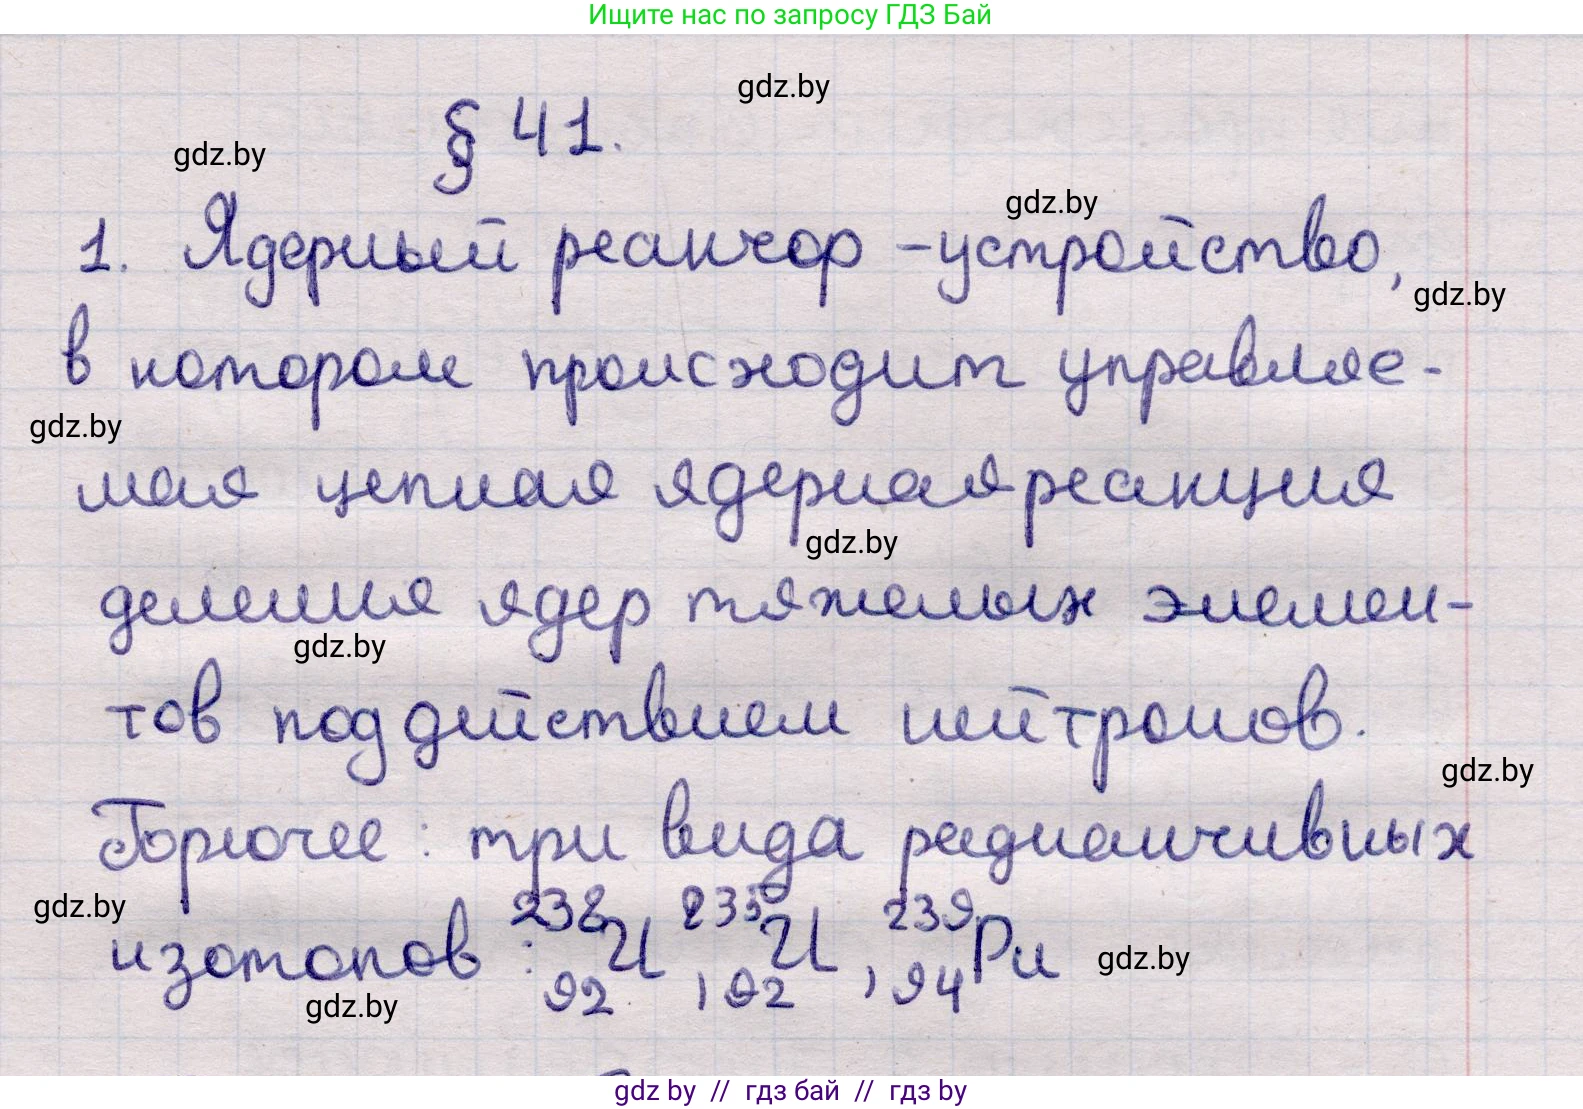 Ищите нас по запросу ГДЗ Бай
gdz.by
§ 41.
gdz.by
gdz.by
1. Ядерный реактор - устройство,
gdz.by
в котором происходит управляе-
gdz.by
мая цепная ядерная реакция
gdz.by
деления ядер тяжелых элемен-
gdz.by
тов под действием нейтронов.
gdz.by
Горючее: три вида радиактивных
gdz.by
изотопов: ²³⁸₉₂U, ²³⁵₉₂U, ²³⁹₉₄Pu
gdz.by
gdz.by
gdz by // гдз бай // гдз by